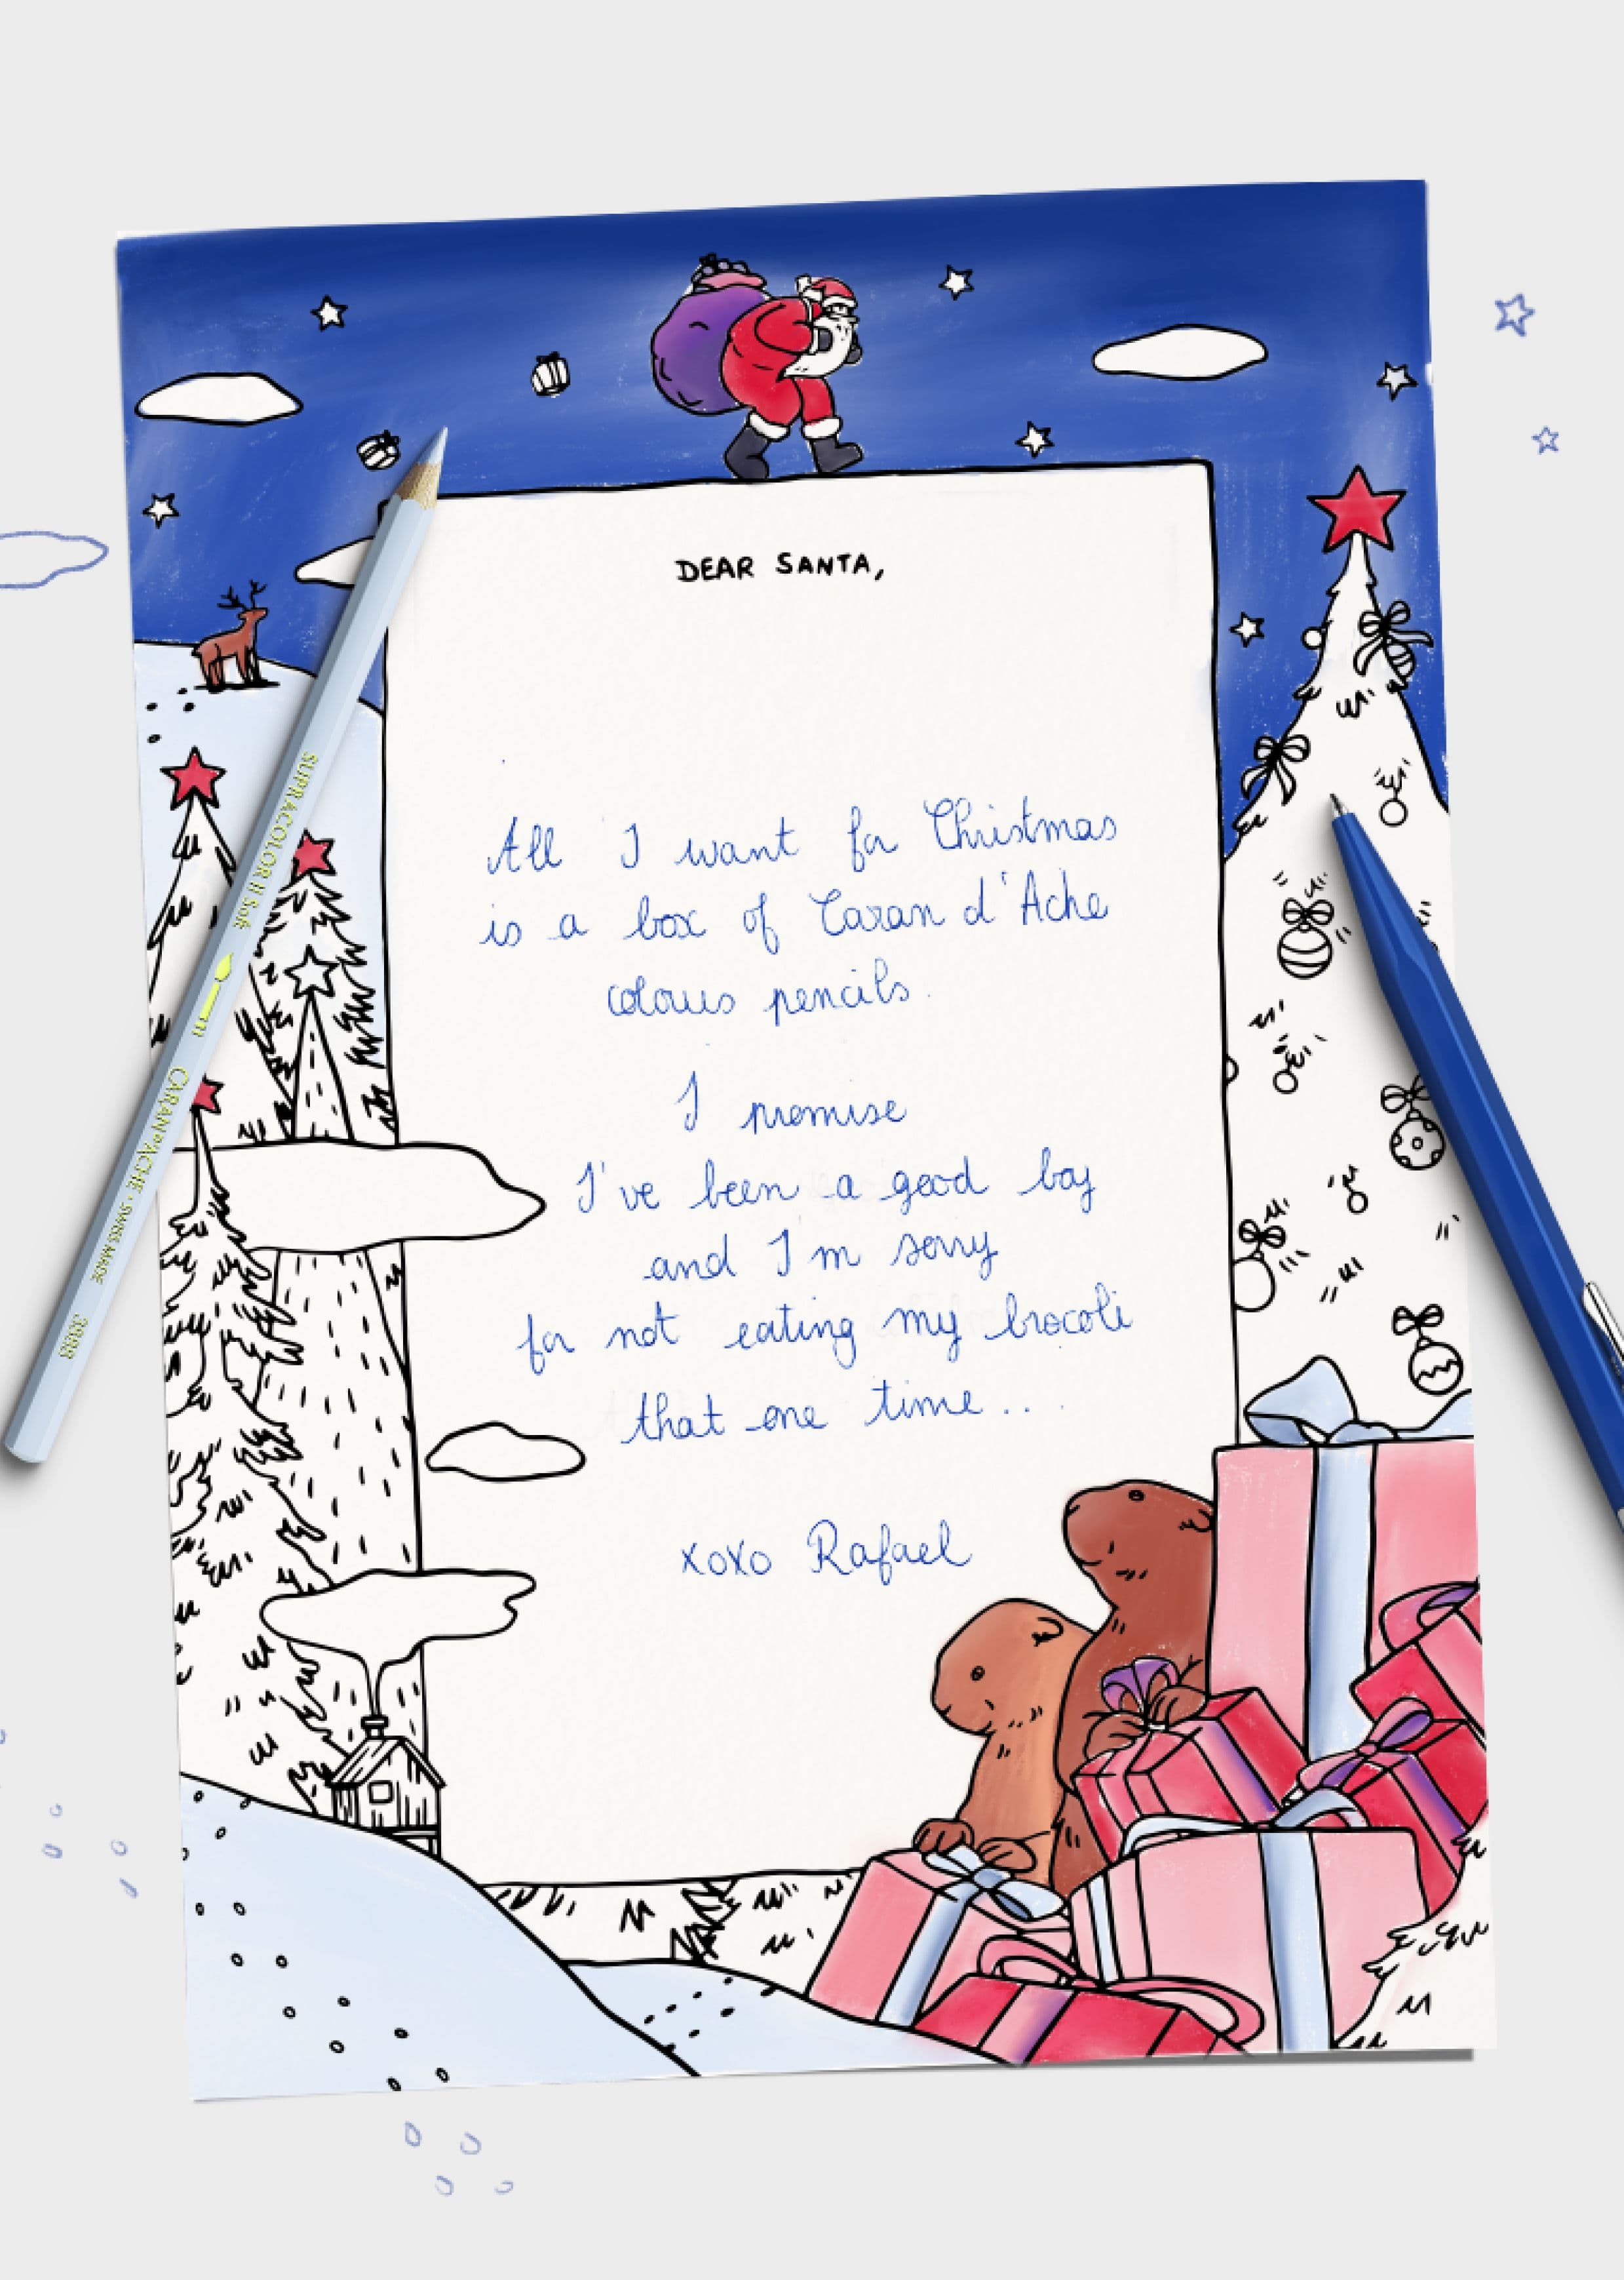 DEAR SANTA,
All I want for Christmas
is a box of Caran d'Ache
colours pencils.
I promise
I've been a good boy
and I'm sorry
for not eating my brocoli
that one time...
xoxo Rafael
SUPRACOLOR II Soft
CARAN D'ACHE · SWISS MADE
3888